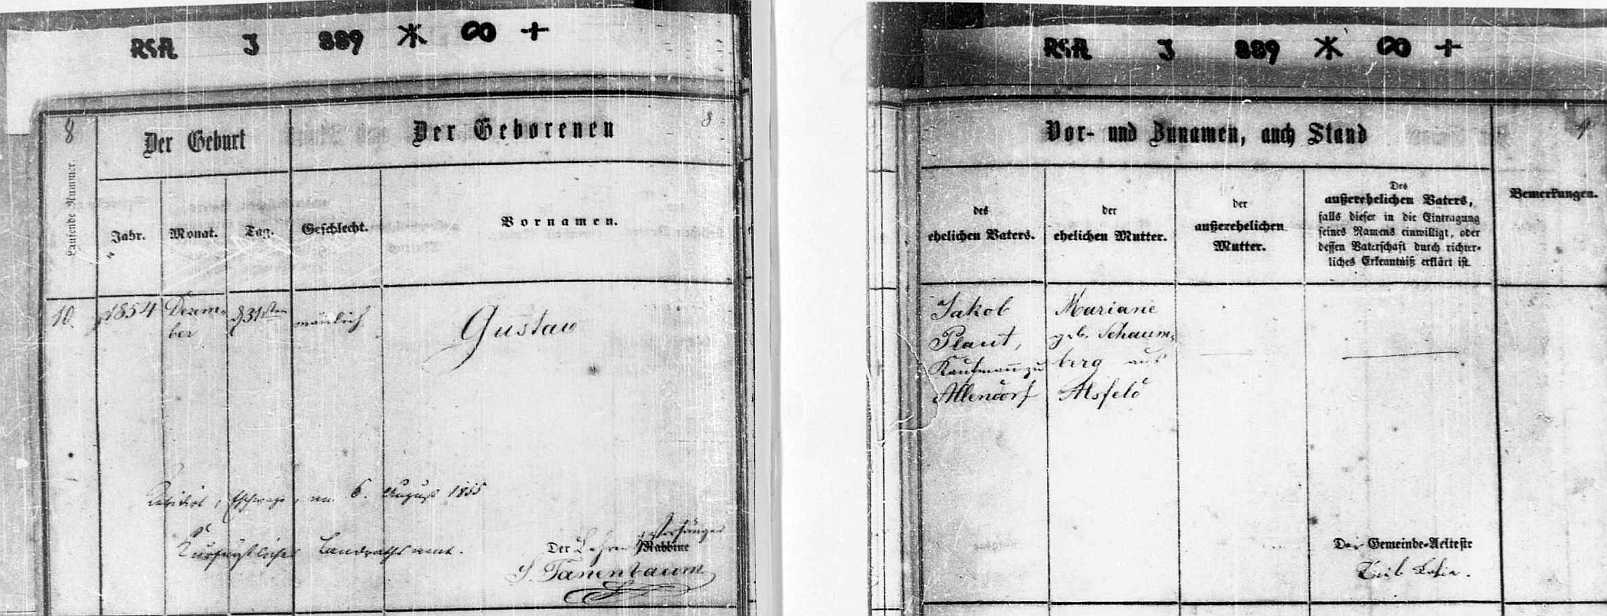 RSA J 889 * ∞ +
8
Der Geburt
Der Geborenen
8
Laufende Nummer.
Jahr.
Monat.
Tag.
Geschlecht.
Vornamen.
10.
1854
Dezem-
ber
31sten
mänlich
Gustav
Revidirt, Eschwege, am 6. August 1855
Kurfürstliches Landrathsamt.
Der Lehrer u Vorsänger
Rabbine
S. Tanenbaum
RSA J 889 * ∞ +
Vor- und Zunamen, auch Stand
des
ehelichen Vaters.
der
ehelichen Mutter.
der
außerehelichen
Mutter.
Des
außerehelichen Vaters,
falls dieser in die Eintragung
seines Namens einwilligt, oder
dessen Vaterschaft durch richter-
liches Erkenntniß erklärt ist.
Bemerkungen.
Jakob
Plaut,
Kaufmann zu
Allendorf
Mariane
geb. Schaum-
berg aus
Alsfeld
Der Gemeinde-Aelteste